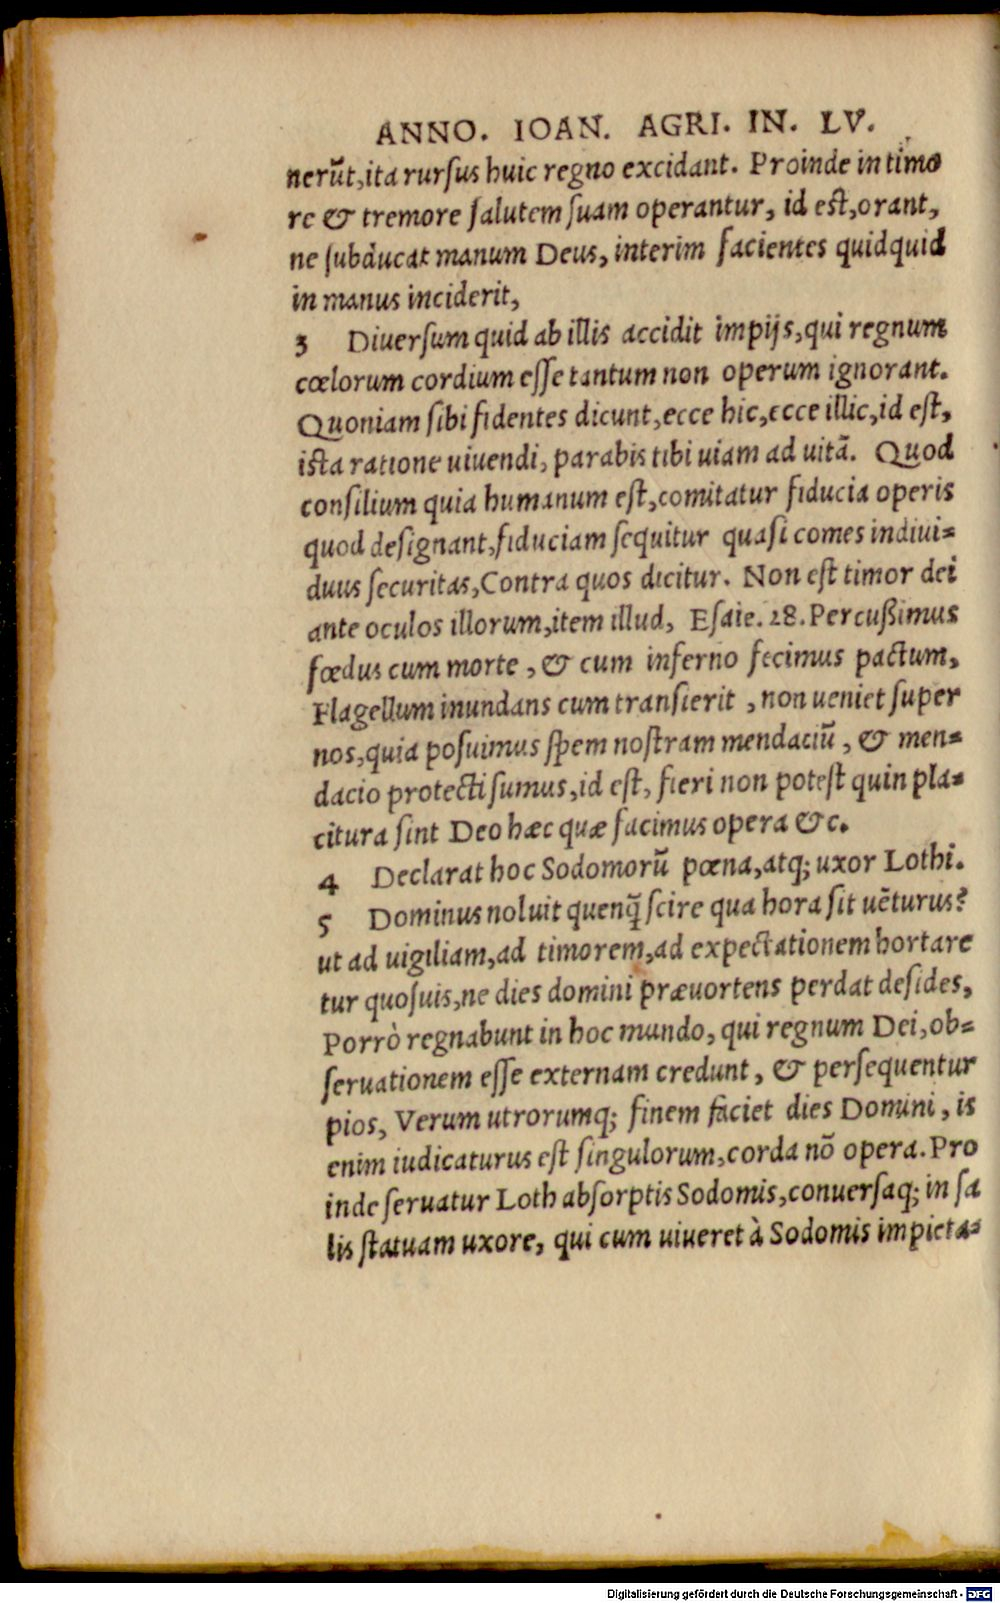 ANNO. IOAN. AGRI. IN. LV.
nerũt,ita rurſus huic regno excidant. Proinde in timo
re & tremore ſalutem ſuam operantur, id eſt,orant,
ne ſubducat manum Deus, interim facientes quidquid
in manus inciderit,
3 Diuerſum quid ab illis accidit impijs,qui regnum
cœlorum cordium eſſe tantum non operum ignorant.
Quoniam ſibi fidentes dicunt,ecce hic,ecce illic,id eſt,
iſta ratione uiuendi, parabis tibi uiam ad uitã. Quod
conſilium quia humanum eſt,comitatur fiducia operis
quod deſignant,fiduciam ſequitur quaſi comes indiui-
duus ſecuritas,Contra quos dicitur. Non eſt timor dei
ante oculos illorum,item illud, Eſaie. 28. Percußimus
fœdus cum morte , & cum inferno fecimus pactum,
Flagellum inundans cum tranſierit , non ueniet ſuper
nos,quia poſuimus ſpem noſtram mendaciũ , & men-
dacio protecti ſumus,id eſt, fieri non poteſt quin pla-
citura ſint Deo hæc quæ facimus opera &c.
4 Declarat hoc Sodomorũ pœna,atq; uxor Lothi.
5 Dominus noluit quenq̃ ſcire qua hora ſit uẽturus?
ut ad uigiliam,ad timorem,ad expectationem hortare
tur quoſuis,ne dies domini præuortens perdat deſides,
Porrò regnabunt in hoc mundo, qui regnum Dei,ob-
ſeruationem eſſe externam credunt, & perſequentur
pios, Verum utrorumq; finem faciet dies Domini, is
enim iudicaturus eſt ſingulorum,corda nõ opera. Pro
inde ſeruatur Loth abſorptis Sodomis,conuerſaq; in ſa
lis ſtatuam uxore, qui cum uiueret à Sodomis impieta-
Digitalisierung gefördert durch die Deutsche Forschungsgemeinschaft - DFG